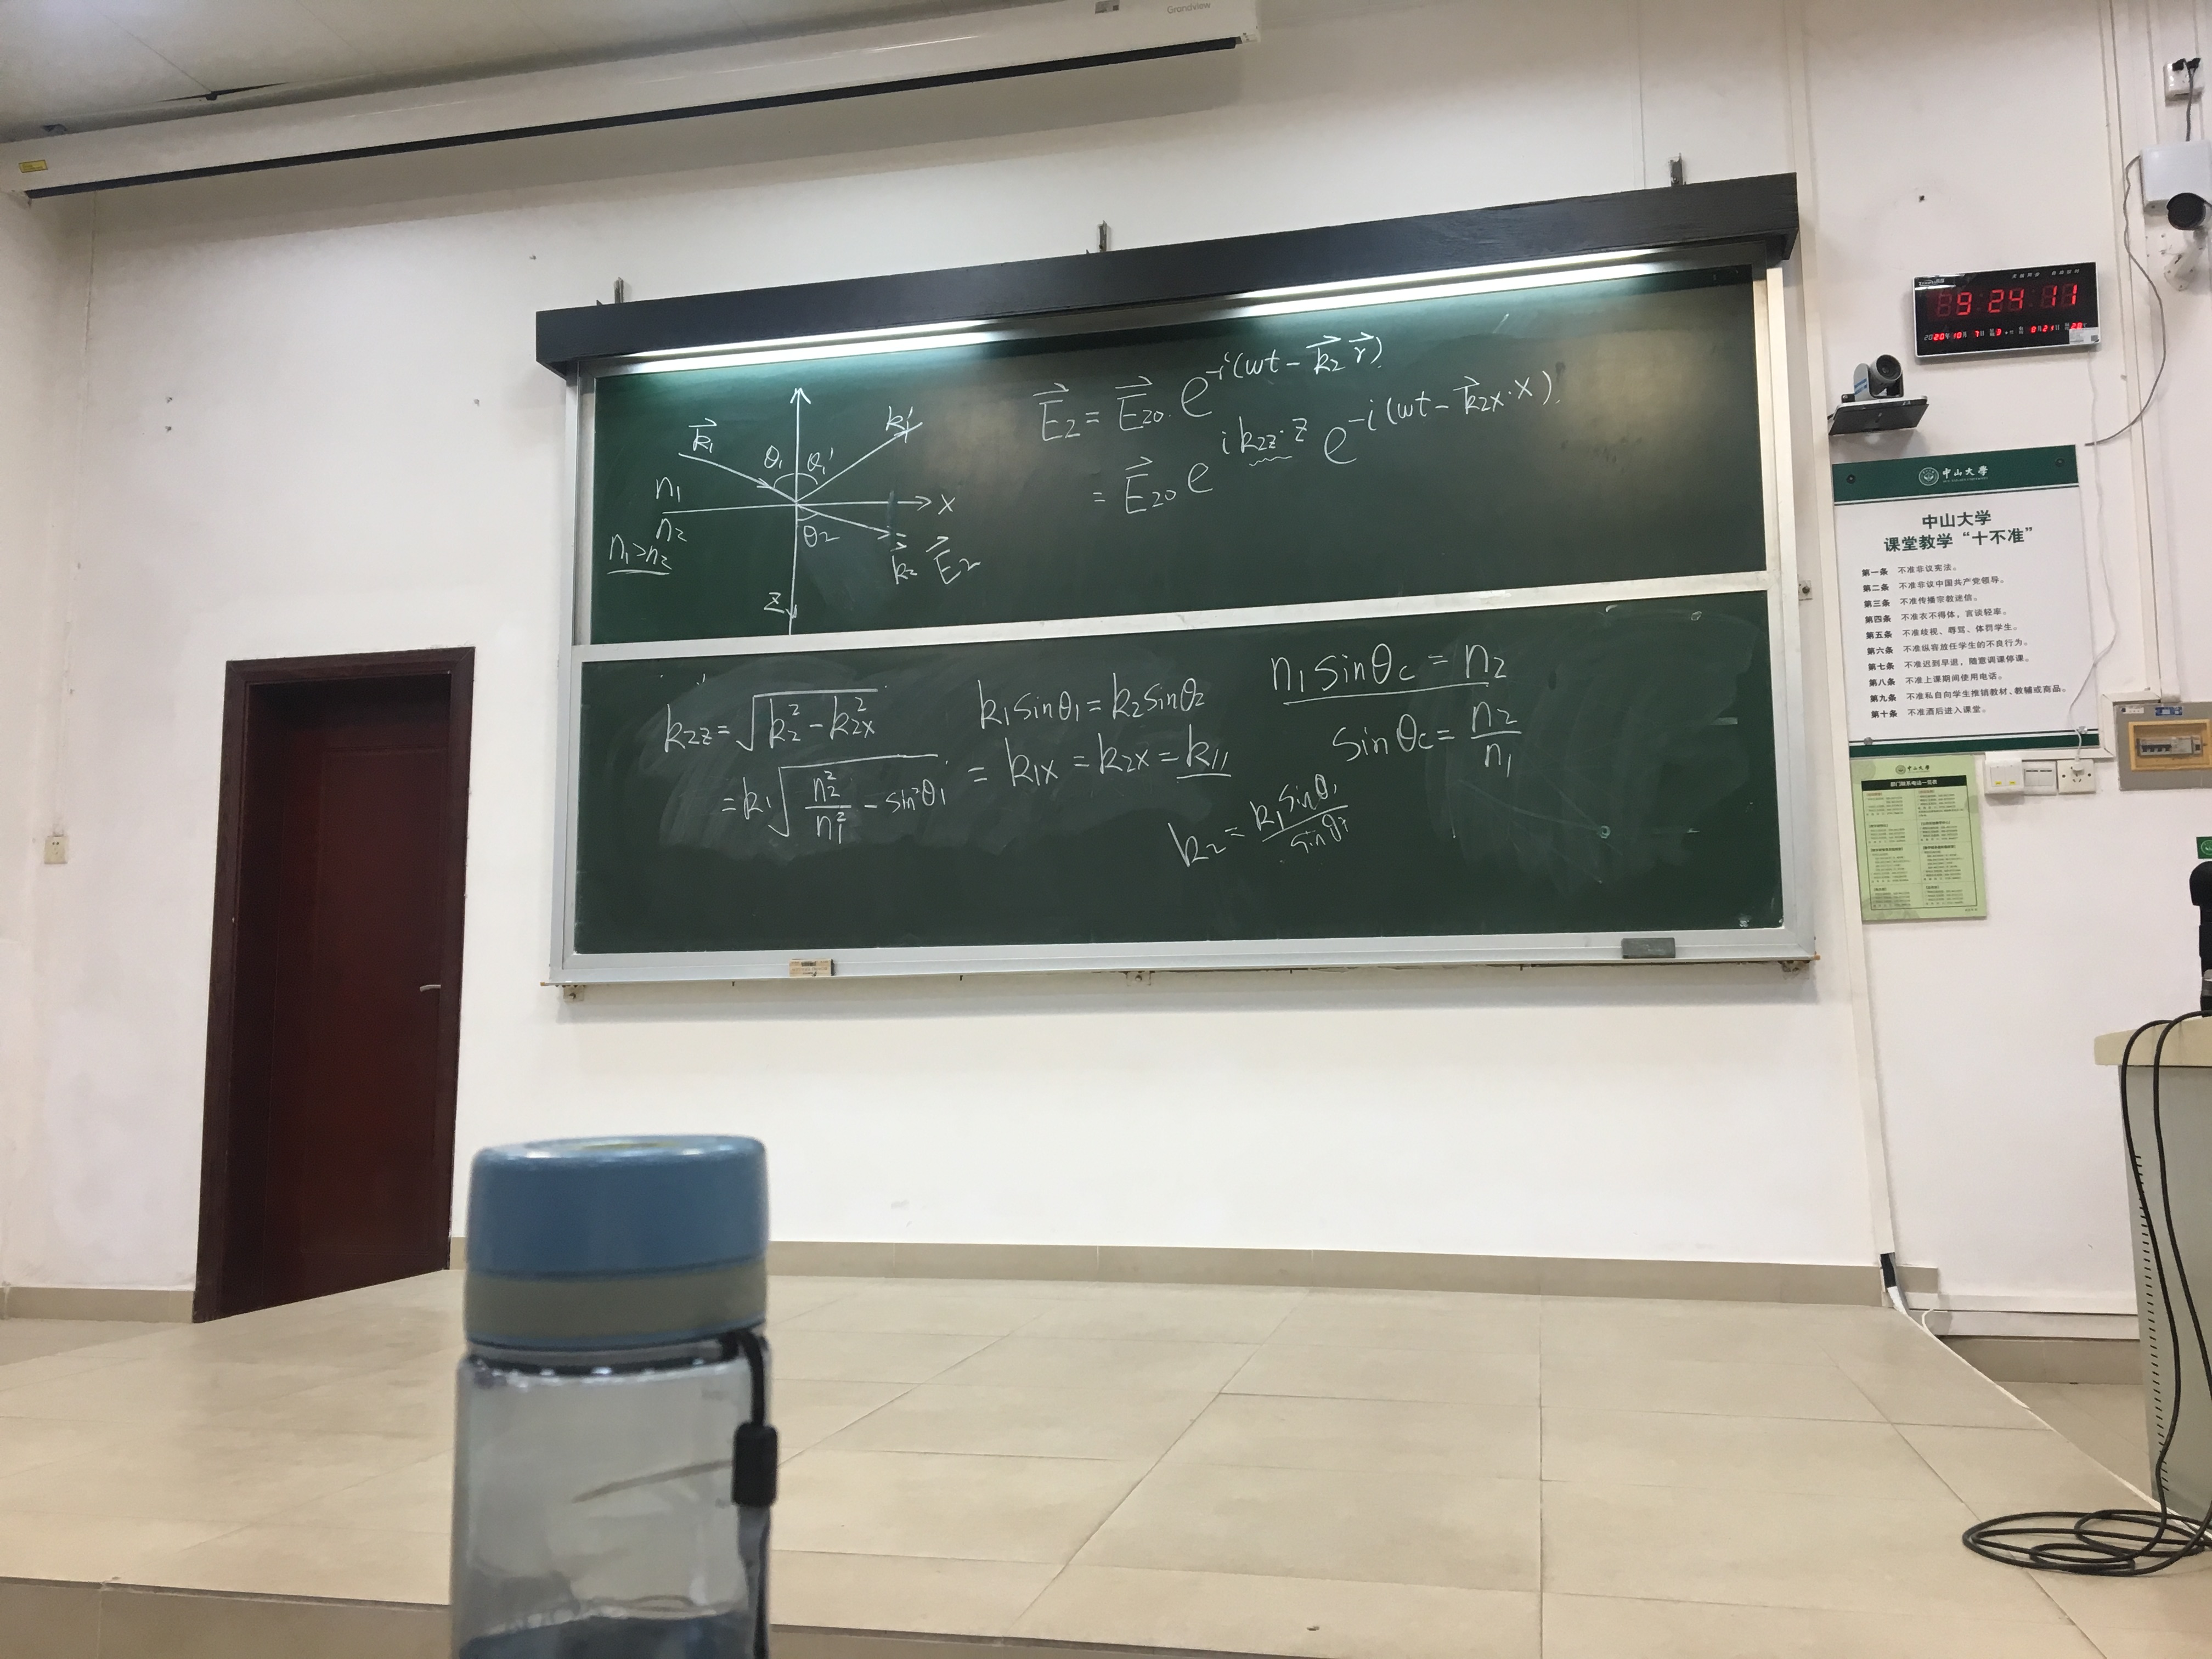 Grandview
k⃗₁
θ₁ θ₁'
k₁'
n₁
x
n₂
n₁>n₂
θ₂
k⃗₂ E⃗₂
z
E⃗₂ = E⃗₂₀. e^{-i(wt - k⃗₂ r⃗)}
= E⃗₂₀ e^{i k₂z·z} e^{-i(wt - k⃗₂x·x)}
k₂z = √(k₂² - k₂x²)
= k₁√(n₂²/n₁² - sin²θ₁)
k₁sinθ₁ = k₂sinθ₂
= k₁x = k₂x = k//
n₁ sinθc = n₂
sinθc = n₂/n₁
k₂ = k₁sinθ₁/sinθ₂
9:24:11
2020年10月 7日
中山大學
中山大学
课堂教学“十不准”
第一条 不准非议宪法。
第二条 不准非议中国共产党领导。
第三条 不准传播宗教迷信。
第四条 不准衣不得体，言谈轻率。
第五条 不准歧视、辱骂、体罚学生。
第六条 不准纵容放任学生的不良行为。
第七条 不准迟到早退，随意调课停课。
第八条 不准上课期间使用电话。
第九条 不准私自向学生推销教材、教辅或商品。
第十条 不准酒后进入课堂。
中山大學
部门联系电话一览表